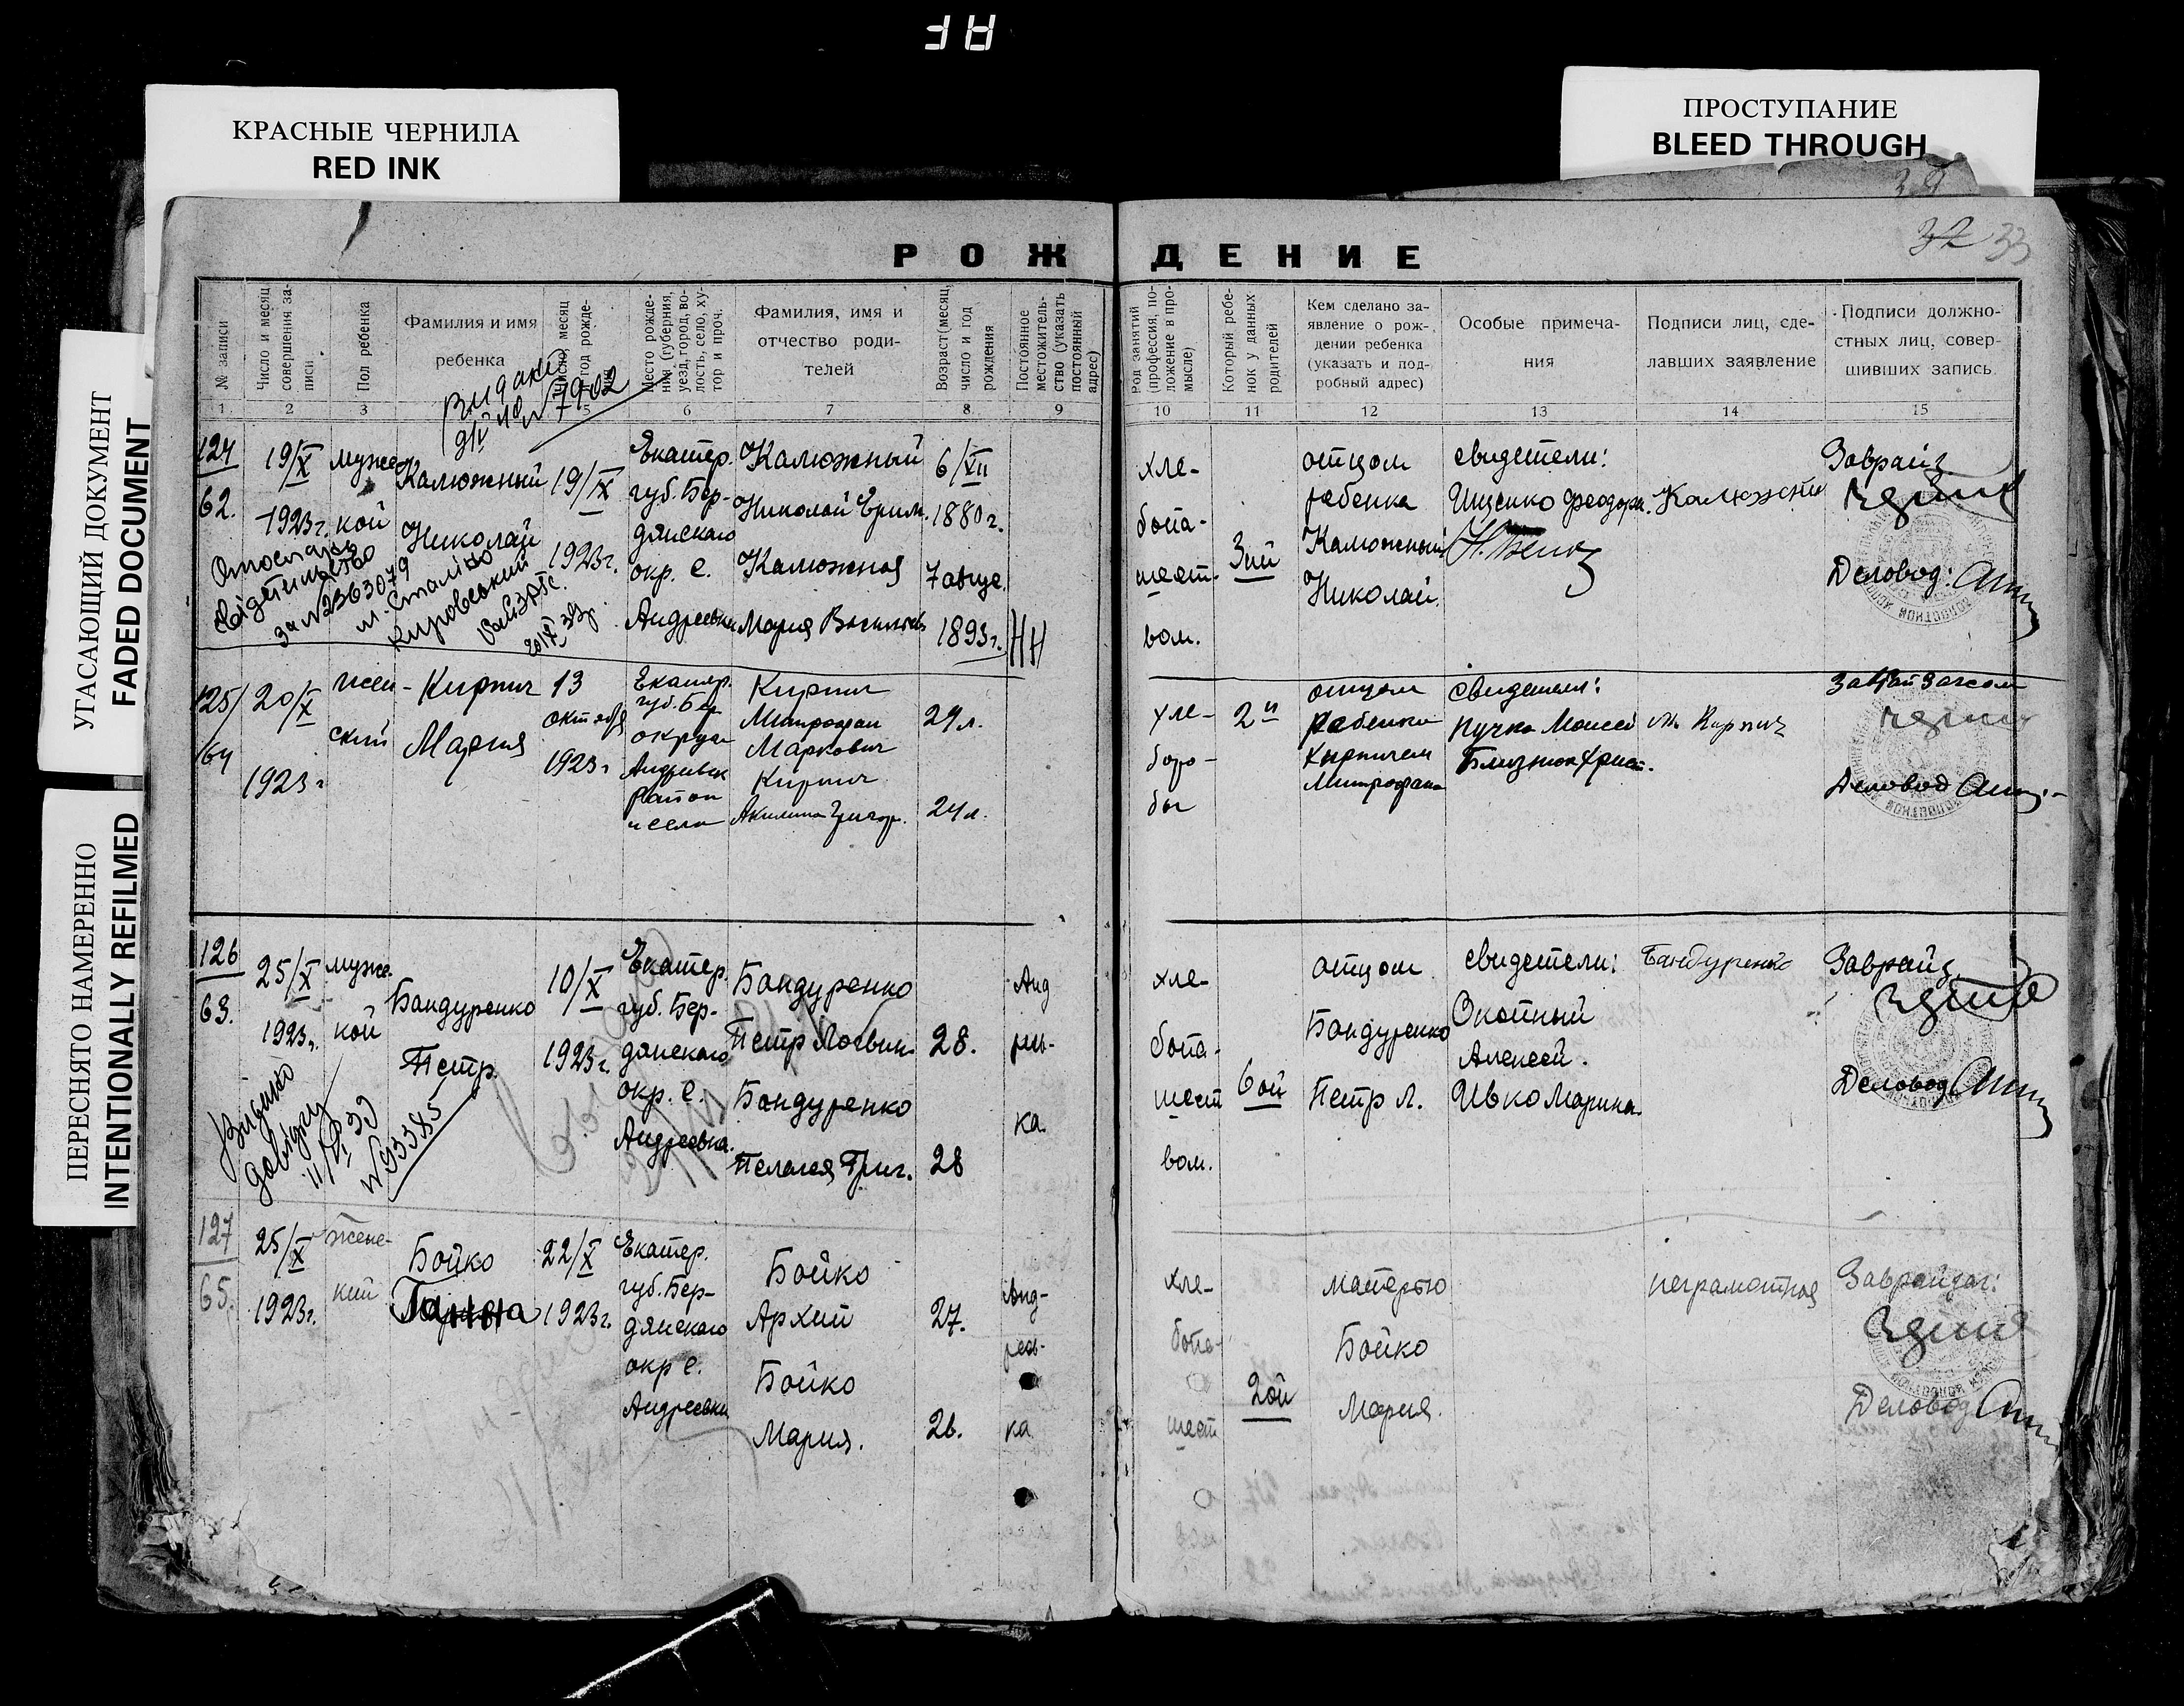 ЗА
КРАСНЫЕ ЧЕРНИЛА
RED INK
ПРОСТУПАНИЕ
BLEED THROUGH
УГАСАЮЩИЙ ДОКУМЕНТ
FADED DOCUMENT
ПЕРЕСНЯТО НАМЕРЕННО
INTENTIONALLY REFILMED
32 33
РОЖДЕНИЕ
№ записи
Число и месяц
совершения за-
писи
Пол ребенка
Фамилия и имя
ребенка
Число, месяц
и год рожде-
ния
Место рожде-
ния (губерния,
уезд, город, во-
лость, село, ху-
тор и проч.
Фамилия, имя и
отчество роди-
телей
Возраст (месяц,
число и год
рождения
Постоянное
местожитель-
ство (указать
постоянный
адрес)
Род занятий
(профессия, по-
ложение в про-
мысле)
Который ребе-
нок у данных
родителей
Кем сделано за-
явление о рож-
дении ребенка
(указать и под-
робный адрес)
Особые примеча-
ния
Подписи лиц, сде-
лавших заявление
Подписи должно-
стных лиц, совер-
шивших запись
1 2 3 5 6 7 8 9 10 11 12 13 14 15
124
62.
19/X
1923г.
мужс
кой
Калюжный
Николай
19/IX
1923г.
Екатер.
губ. Бер-
дянского
окр. с.
Андреевки
Калюжный
Николай Ефим.
Калюжная
Мария Васильев
6/XII
1880г.
7 авгус.
1893г.
НН
хле-
бопа-
шест-
вом.
3ий
отцом
ребенка
Калюжный
Николай.
свидетели:
Ищенко Феодор.
Заврайз.
Деловод:
за № 2363079
м. Сталіно
Кировський
125/
64
20/X
1923г
жен-
ский
Кирпич
Мария
13
октября
1923г
Екатер.
губ. Бер
округа
Андреевск
район
и села
Кирпич
Митрофан
Маркович
Кирпич
Акилина Григор.
29л.
24л.
хле-
боро-
бы
2й
отцом
ребенка
Кирпичем
Митрофана
свидетели:
Пучка Моисей
М. Кирпич
Деловод
126
63.
25/X
1923г.
мужс
кой
Бондуренко
Петр.
10/X
1923г.
Екатер.
губ. Бер-
дянского
окр. с.
Андреевка.
Бондуренко
Петр Логвин.
Бондуренко
Пелагея Григ.
28.
28
Анд
рев-
ка.
хле-
бопа-
шест
вом.
6ой
отцом
Бондуренко
Петр Л.
свидетели:
Охотный
Алексей.
Ивко Марина.
Бандуренко
Заврайз.
Деловод
Видико
довідку
№ 3385
127
65.
25/X
1923г.
женс-
кий
Бойко
22/X
1923г.
Екатер.
губ. Бер-
дянского
окр с.
Андреевки
Бойко
Архип
Бойко
Мария.
27.
26.
Анд-
реев-
ка
хле-
бопа-
шест
2ой
матерью
Бойко
Мария.
неграмотная
Заврайзаг:
Деловод